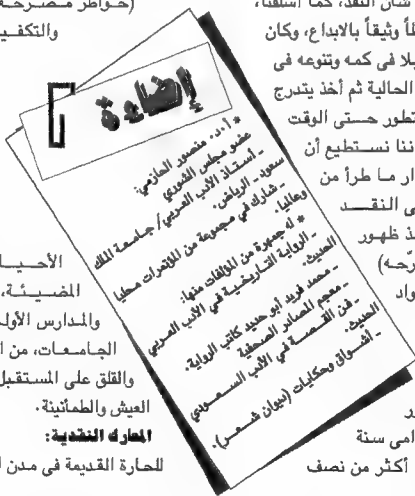 (خواطر مصرحة
والتكفـ
شأن النقد، كما أسلفنا،
قاً وثيقاً بالابداع، وكان
يلا فى كمه وتنوعه فى
الحالية ثم أخذ يتدرج
تطور حــتى الوقت
ننا نســتطيع أن
ار مـا طرأ من
ى النقــد
ـذ ظهـور
رّحـه)
واد
امى سنة
أكثر من نصف
إضاءة
* أ.د. منصور الحازمى:
عضو مجلس الشورى
- أستـاذ الأدب العـربى/ جـامـعـة الملك
سعود - الرياض.
- شارك فى مجموعة من المؤتمرات محليا
وعالميا.
* له جمهرة من المؤلفات منها:
- الرواية التـاريخـيـة فى الأدب العـربى
الحديث.
- محمد فريد أبو حديد كاتب الرواية.
- معجم المصادر الصحفية
- فن القـصـة فى الأدب السـعـودى
الحديث.
- أشـواق وحكايات (ديوان شـعـر).
الأحيـا
المضـيـئـة،
والمـدارس الأولـ
الجـامـعـات، من ا
والقلق على المستقبل
العيش والطمأنينة.
المعارك النقدية:
للحارة القديمة فى مدن ا